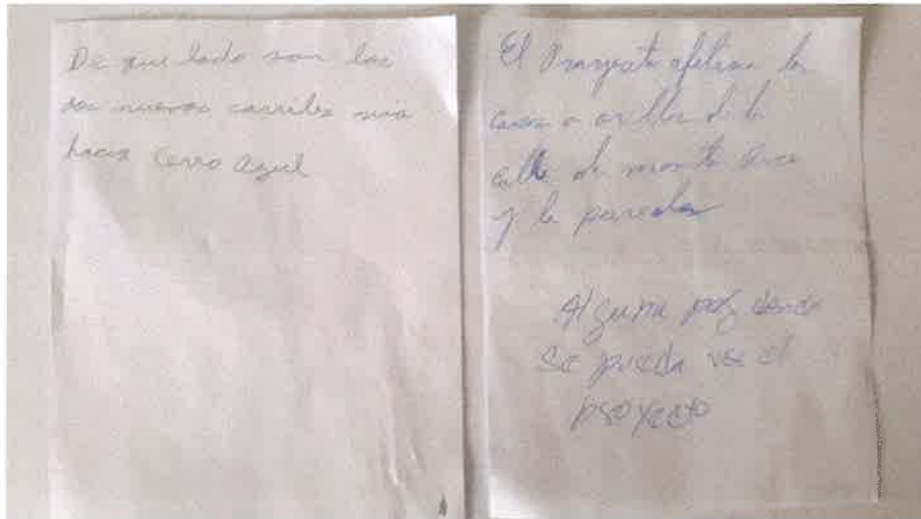 De que lado son los
dos nuevos carriles
hacia Cerro Azul
El Proyecto afectara la
casa a orillas de la
calle de monte
y la paredes
Alguna pag donde
se pueda ver el
proyecto